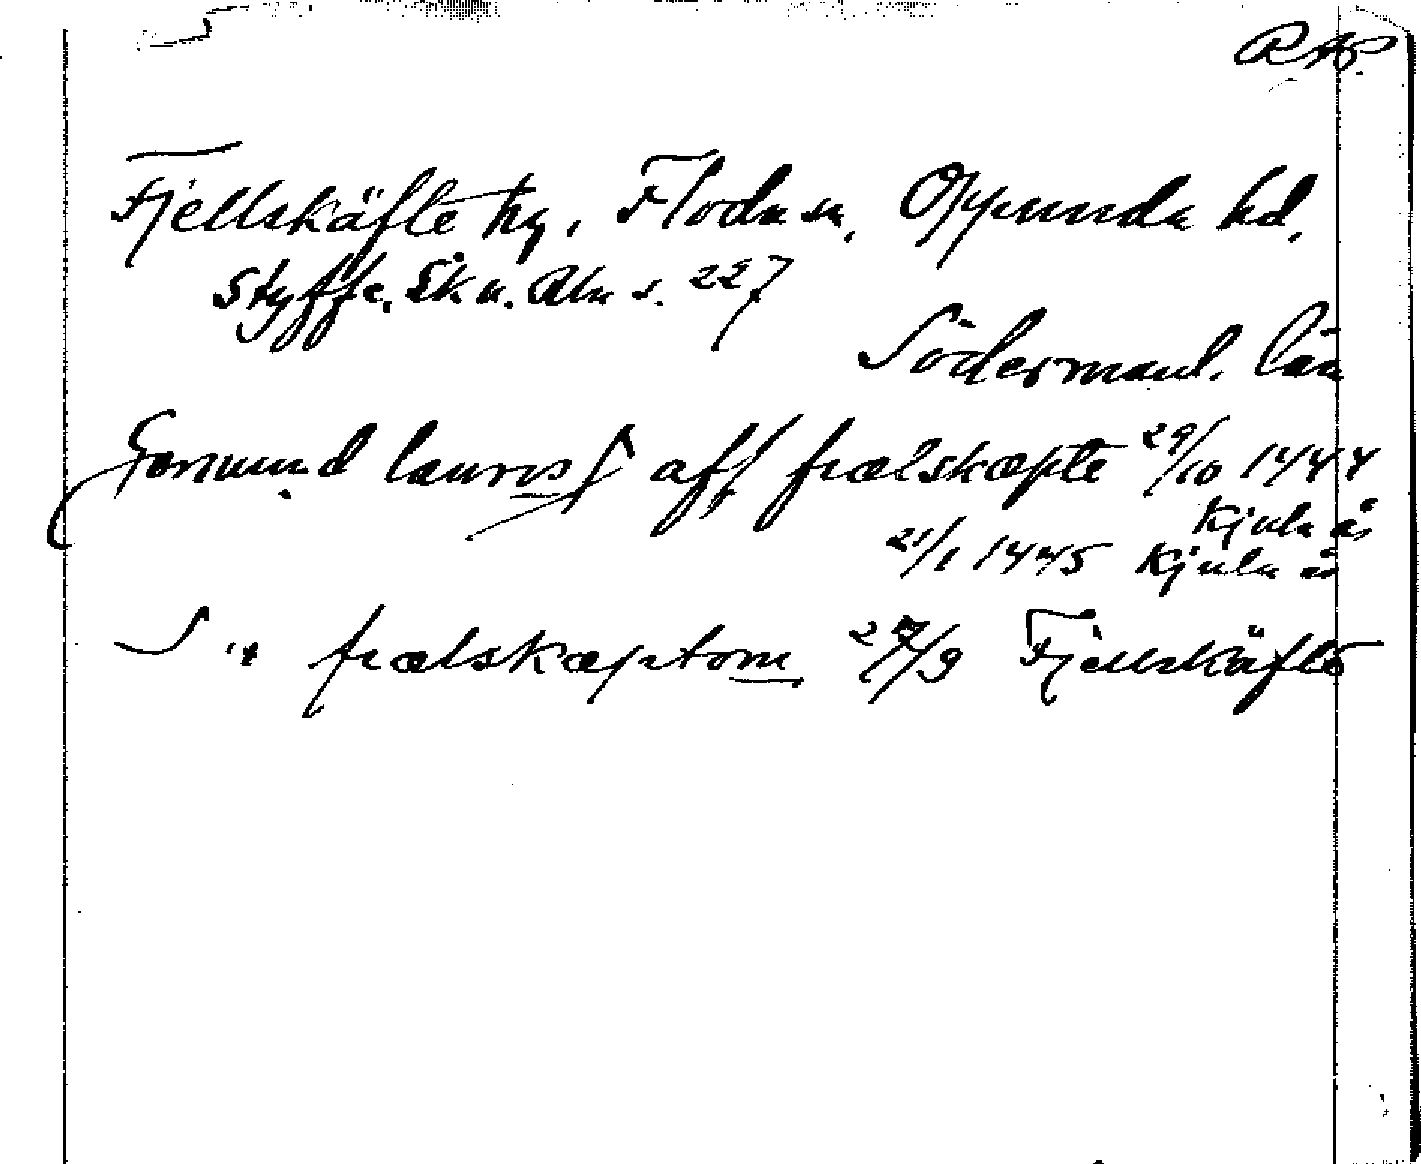 RAP.
Fjellskäfte by, Floda sn, Oppunda hd.
Styffe, Sk. u. Un s. 227
Södermanl. län
Gormund laur<u>is</u>s aff frælskæpte 29/10 1444
Kjula ås
21/1 1445 Kjula ås
S " frælskæpt<u>om</u> /9 Fjellskäfte